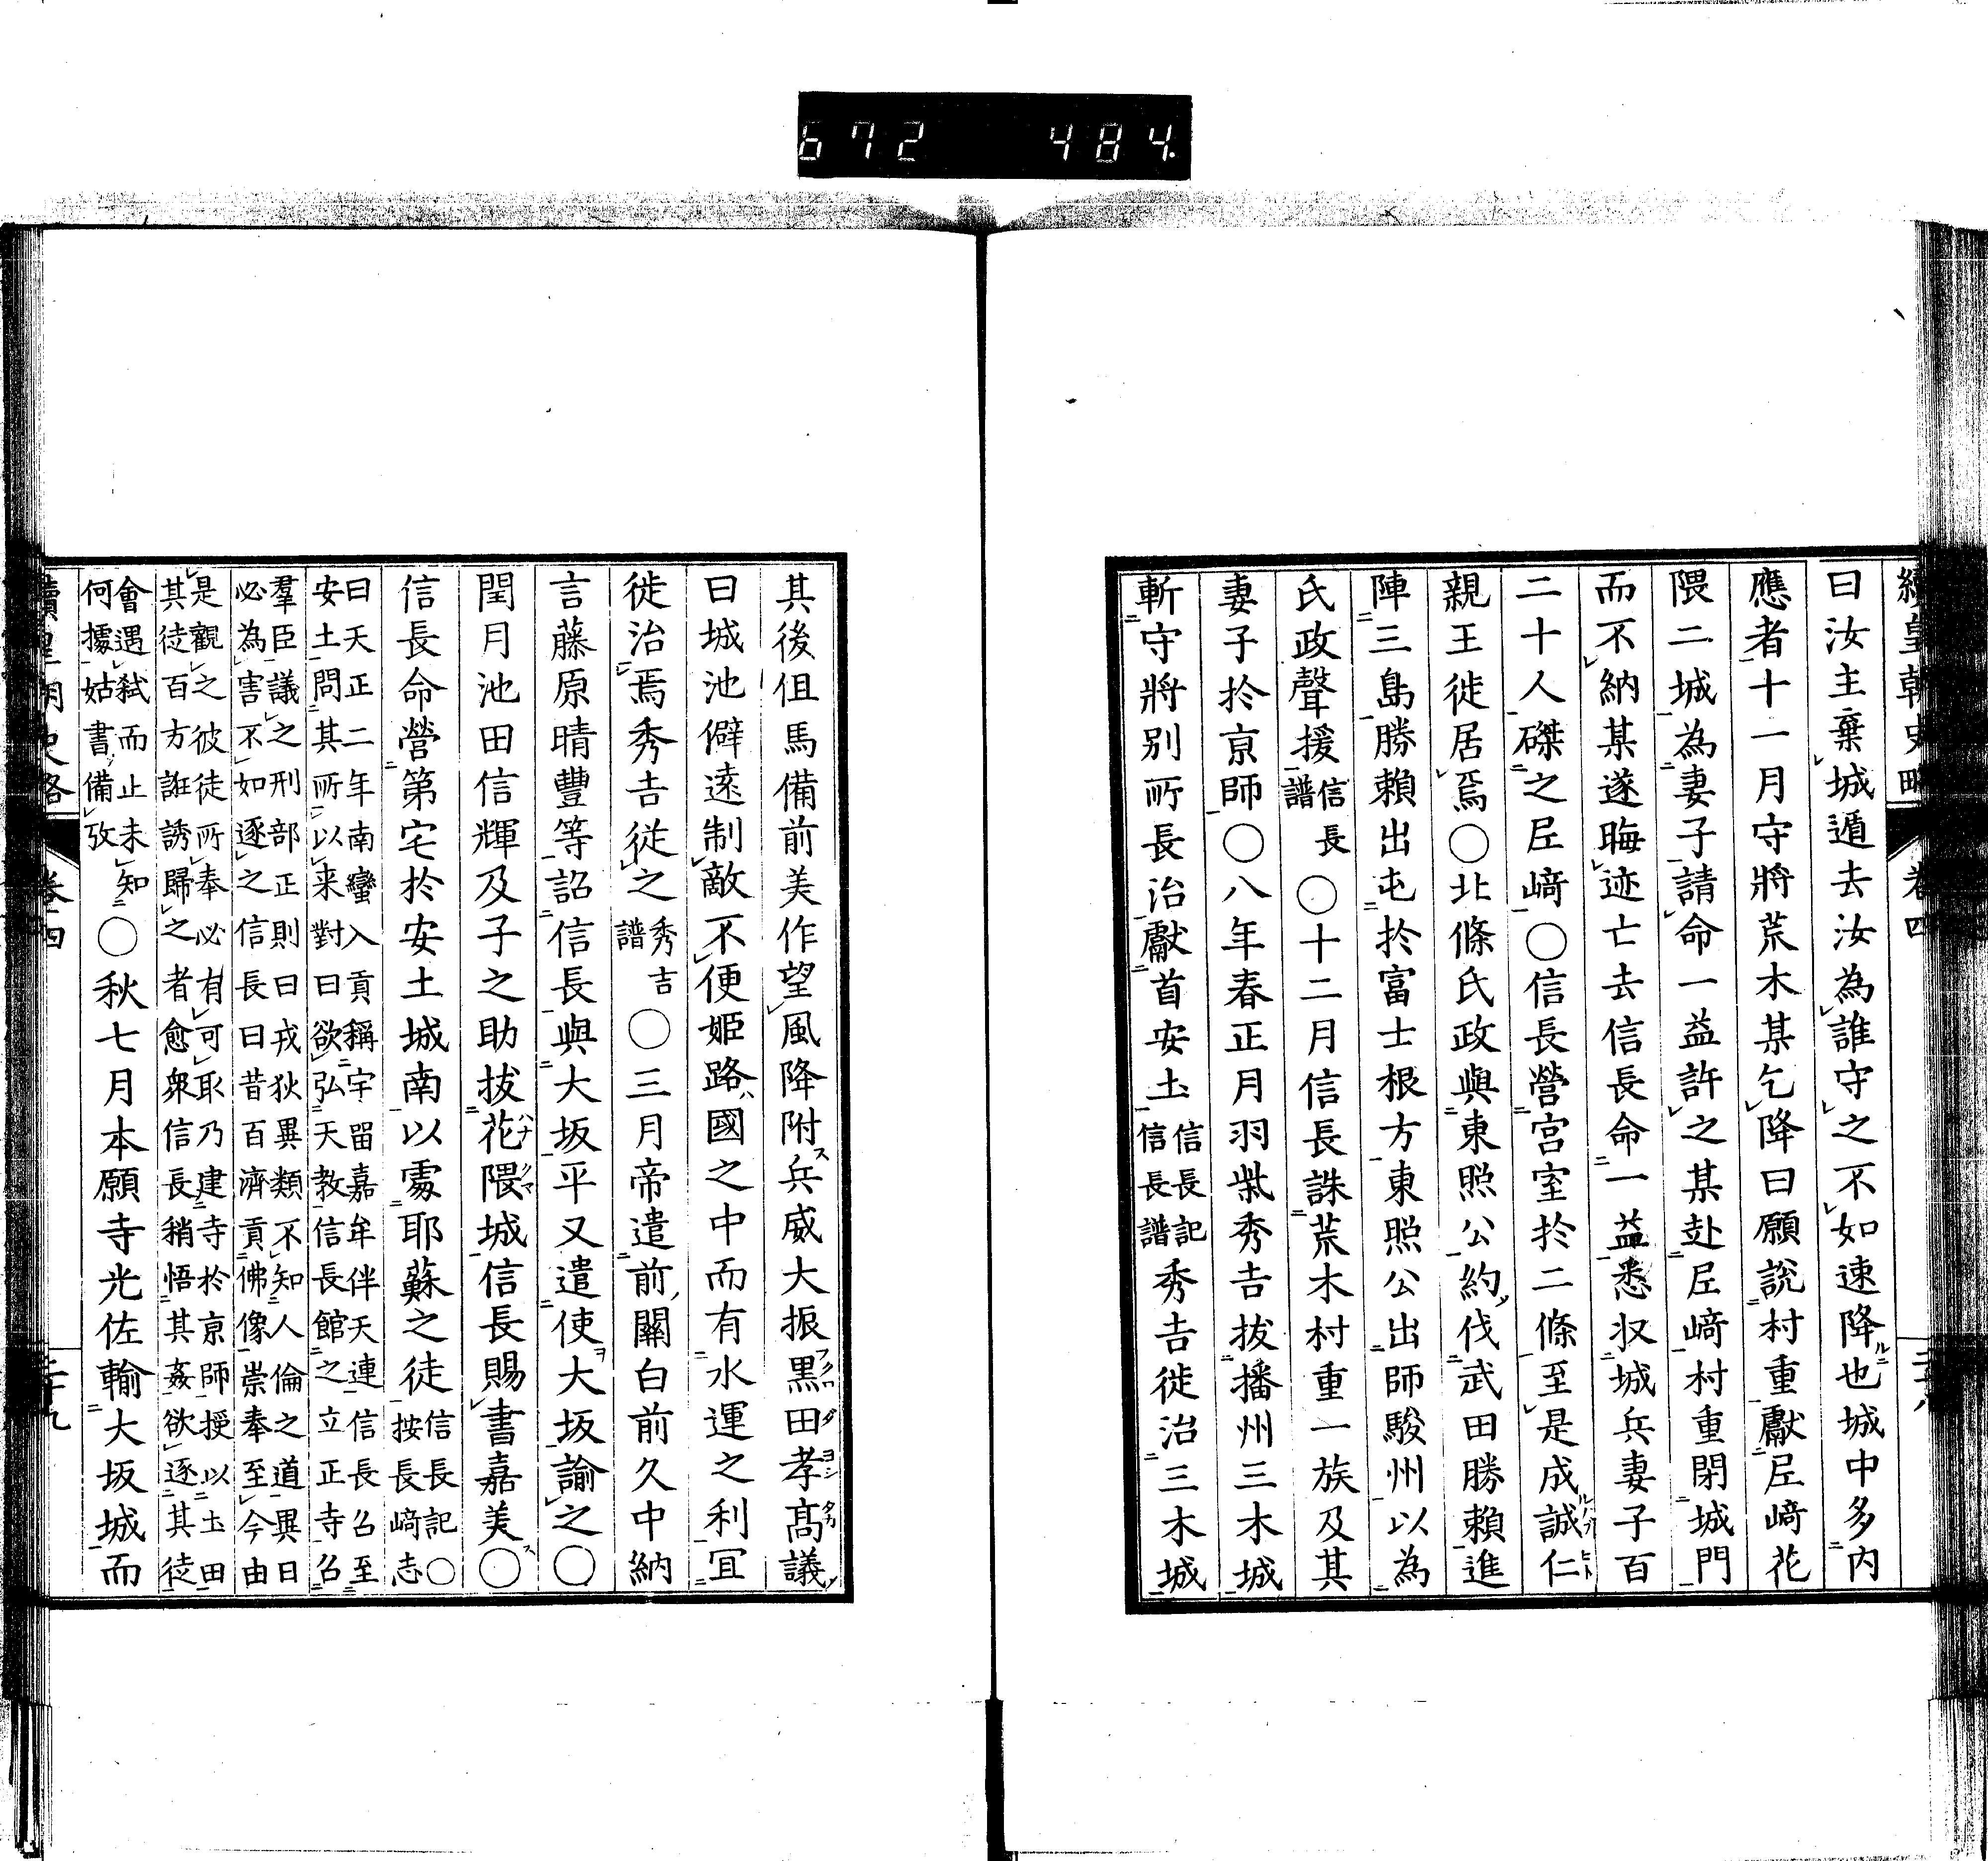 672 484
續皇朝史略 卷四
曰汝主棄城遁去汝為誰守之不如速降也城中多內
應者十一月守將荒木某乞降曰願說村重獻尼﨑花
隈二城為妻子請命一益許之某赴尼﨑村重閉城門
而不納某遂晦迹亡去信長命一益悉収城兵妻子百
二十人磔之尼﨑〇信長營宮室於二條至是成誠仁
親王徙居焉〇北條氏政與東照公約伐武田勝賴進
陣三島勝賴出屯於富士根方東照公出師駿州以為
氏政聲援信長譜〇十二月信長誅荒木村重一族及其
妻子於京師〇八年春正月羽柴秀吉拔播州三木城
斬守將別所長治獻首安土信長記信長譜秀吉徙治三木城
其後但馬備前美作望風降附兵威大振黑田孝高議
曰城池僻遠制敵不便姬路國之中而有水運之利宜
徙治焉秀吉從之秀吉譜〇三月帝遣前關白前久中納
言藤原晴豐等詔信長與大坂平又遣使大坂諭之〇
閏月池田信輝及子之助拔花隈城信長賜書嘉美〇
信長命營第宅於安土城南以處耶蘇之徒信長記〇按長﨑志
曰天正二年南蠻入貢稱宇留嘉牟伴天連信長召至
安土問其所以来對曰欲弘天教信長館之立正寺召
羣臣議之刑部正則曰戎狄異類不知人倫之道異日
必為害不如逐之信長曰昔百濟貢佛像崇奉至今由
是觀之彼徒所奉必有可取乃建寺於京師授以土田
其徒百方誑誘歸之者愈衆信長稍悟其姦欲逐其徒
會遇弒而止未知
何據姑書備攷〇秋七月本願寺光佐輸大坂城而
卷四